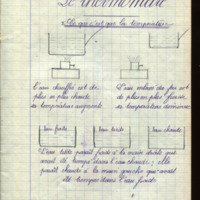 Le thermomètre
Ce que c'est que la température
L'eau chauffée est de
plus en plus chaude
sa température augmente
L'eau enlevée du feu est
de plus en plus froide
sa température diminue
eau froide
eau tiède
eau chaude
L'eau tiède paraît froide à la main droite qui
avait été trempée dans l'eau chaude; elle
paraît chaude à la main gauche qui avait
été trempée dans l'eau froide